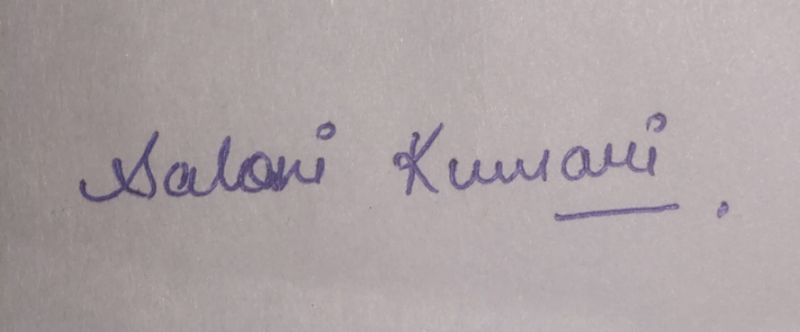 Saloni Kumari.